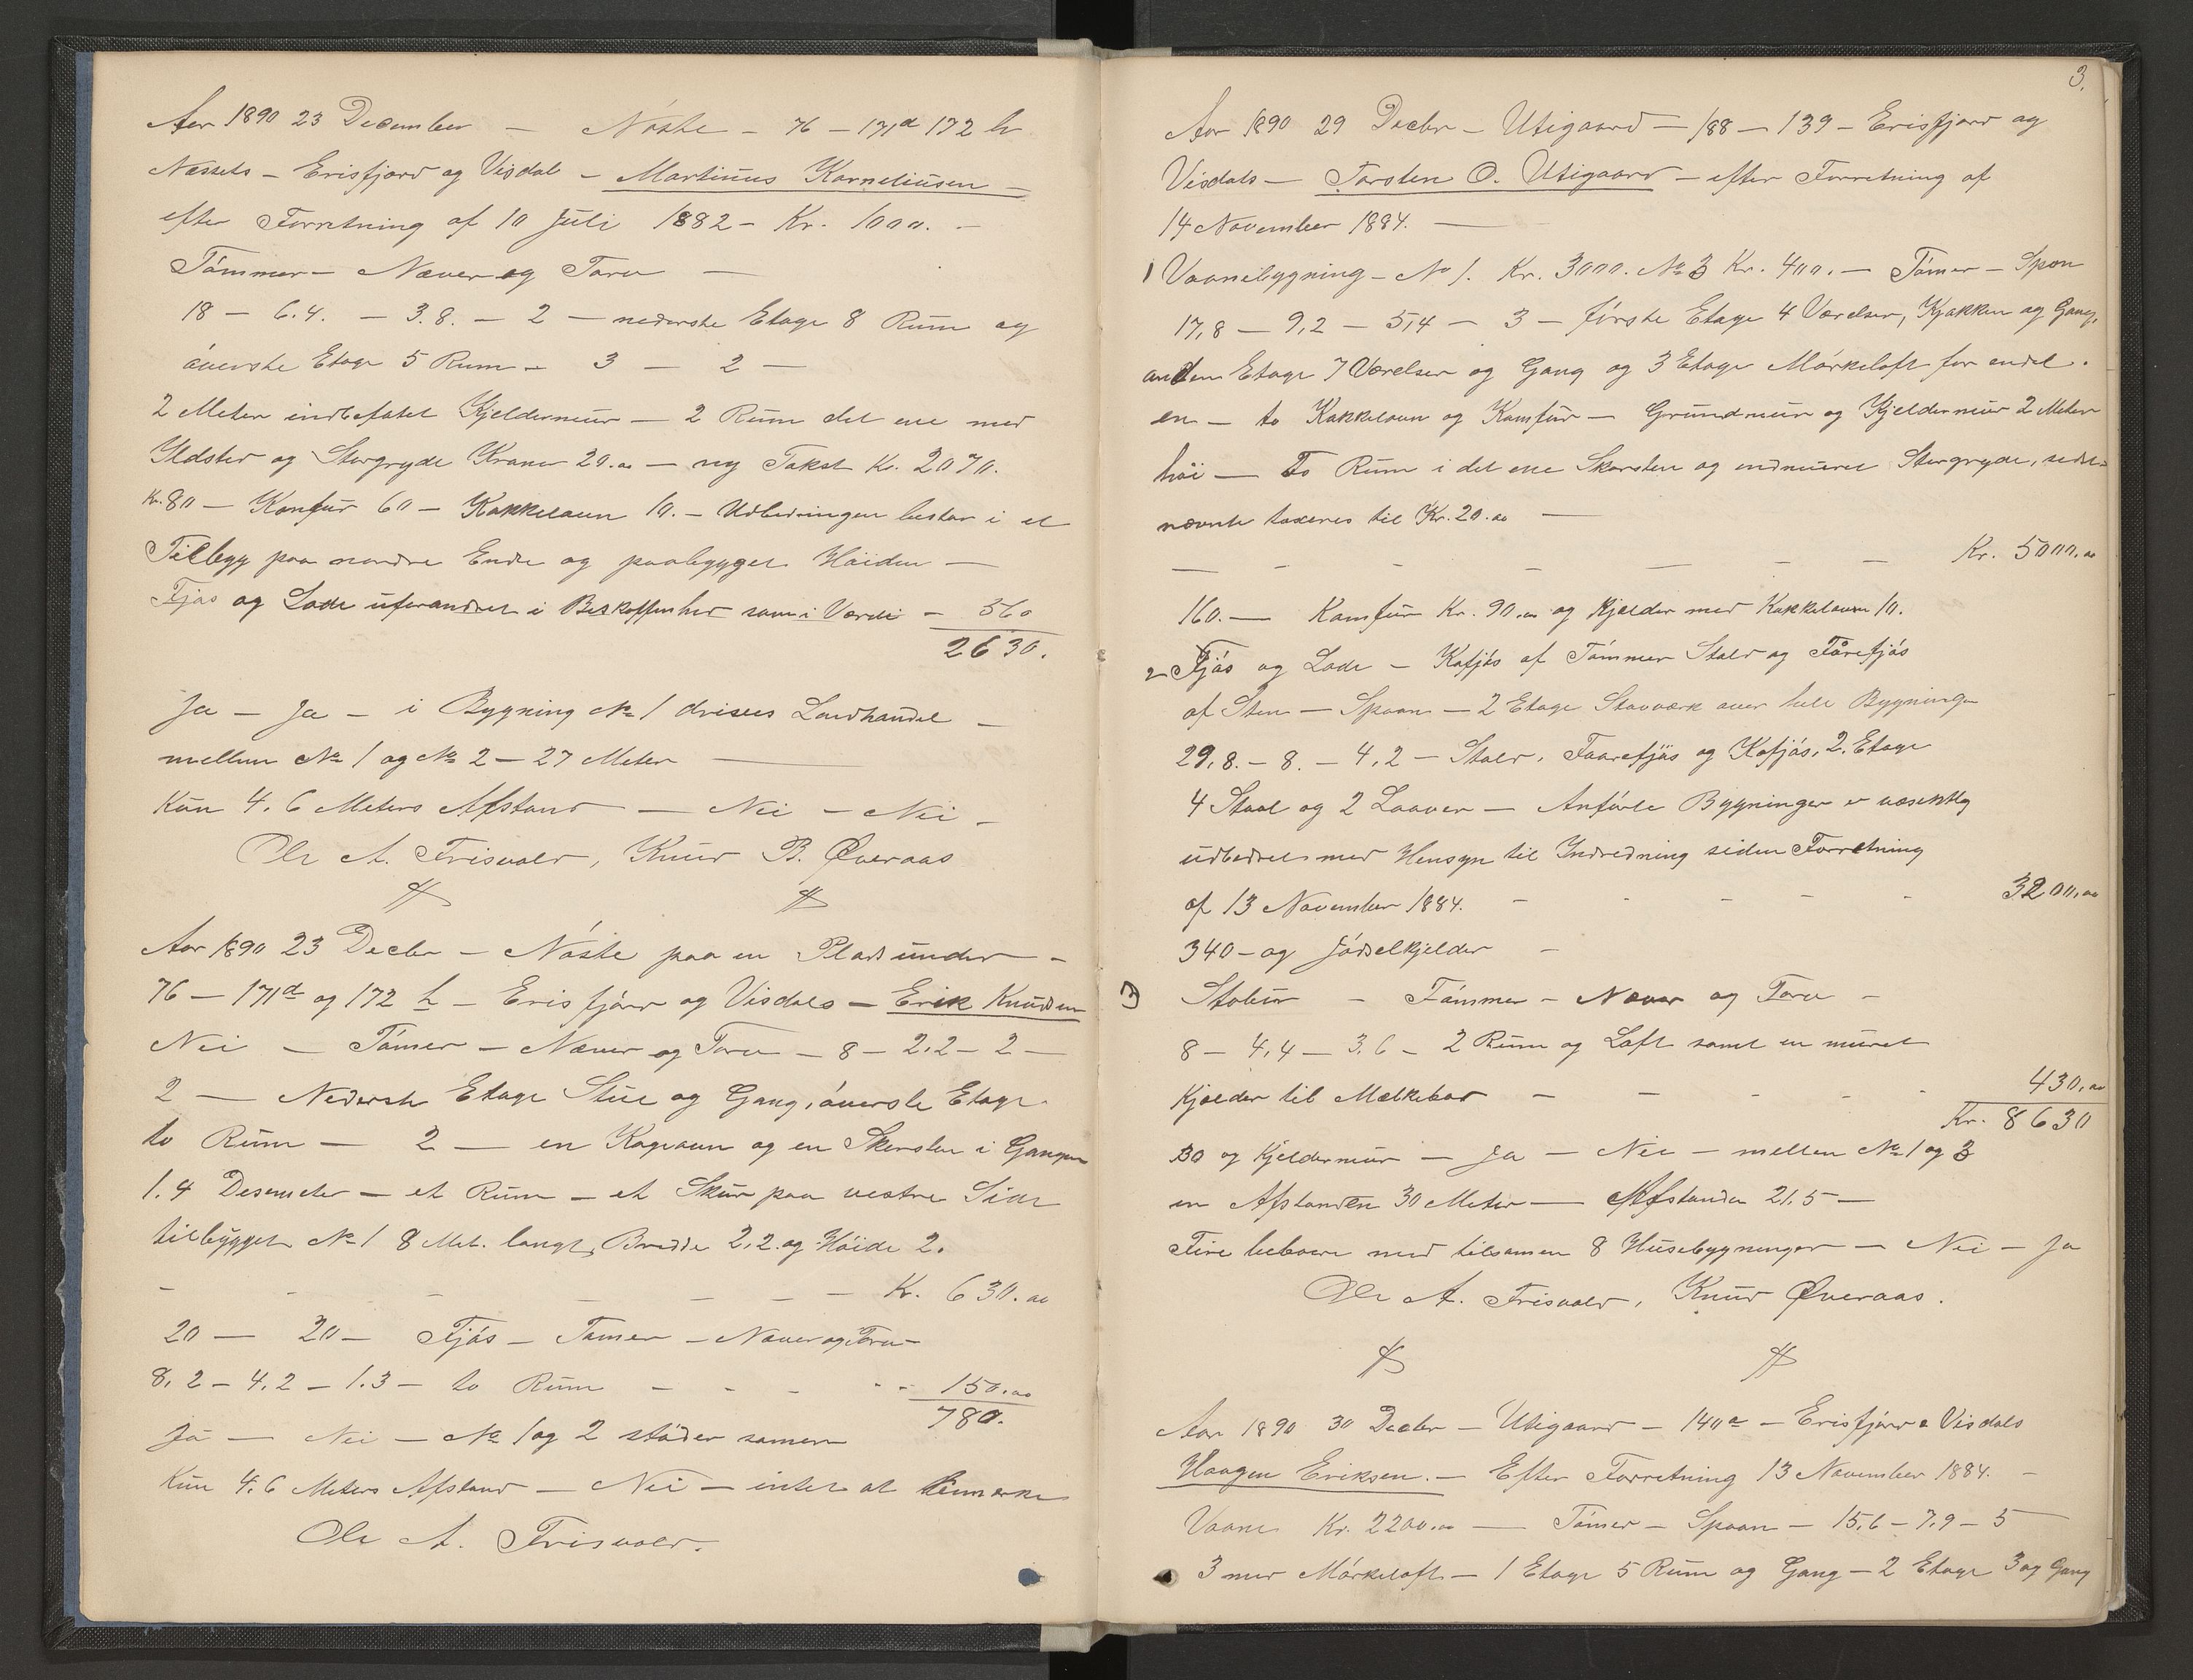 Aar 1890 23 December - Nöste - 76 - 171d 172 h
Næssets - Erisfjord og Visdal - Martinus Korneliusen -
efter Forretning af 10 Juli 1882 - Kr. 1000. -
Tömmer - Næver og Torv -
18 - 6.4. - 3.8. - 2 - nederste Etage 8 Rum og
överste Etage 5 Rum - 3 - 2 -
2 Meter indbefatet Kjeldermur - 2 Rum det ene med
Ildsted og Storgryde Kroner 20.00 - ny Takst Kr. 2070.
Kr. 80 - Komfur 60 - Kakkelaun 10. - Udbedringen bestar i et
Tilbygg paa nordre Ende og paabygget Höiden -
Fjös og Lade uforandret i Beskaffenhed som i Værdi - 560
2630.
Ja - Ja - i Bygning No 1 drives Landhandel -
mellem No 1 og No 2 - 27 Meter -
Kun 4.6 Meters Afstand - Nei - Nei -
Ole A. Frisvold, Knud B. Øveraas
Aar 1890 23 Decbr - Nöste paa en Plads under -
76 - 171d og 172 h - Erisfjord og Visdals - Erik Knudsen
Nei - Tömer - Næver og Torv - 8 - 2.2 - 2 -
2 - Nederste Etage Stue og Gang, överste Etage
to Rum - 2 - en Kogeovn og en Skorsten i Gangen
1.4 Desemeter - et Rum - et Skur paa vestre Side
tilbygget No 1 8 Met. langt, Bredde 2,2. og Höide 2.
- - - - - - - Kr. 630.00
20 - 20 - Fjös - Tömer - Næver og Torv -
8,2 - 4,2 - 1.3 - to Rum - - - - - 150.00
780.
Ja - Nei - No 1 og 2 stöder samen
Kun 4.6 Meters Afstand - Nei - intet at bemærke
Ole A. Frisvold.
3.
Aar 1890 29 Decbr - Utigaard - 188 - 139 - Erisfjord og
Visdals - Torsten O. Utigaard - efter Forretning af
14 November 1884. -
1 Vaanebygning - No 1. Kr. 3000. No 3 Kr. 400. - Tömer - Spon
17,8 - 9,2 - 5,4 - 3 - förste Etage 4 Værelser, Kjökken og Gang,
anden Etage 7 Værelser og Gang og 3 Etage Mörkeloft for endel.
en - to Kakkelaun og Komfur - Grundmur og Kjeldermur 2 Meter
höi - To Rum i det ene Skorsten og indmuret Storgryde, sidst-
nævnte taxeres til Kr. 20.00 -
- - - - - - - Kr. 5000.00
160. - Komfur Kr. 90.00 og Kjelder med Kakkelaun 10.
2 Fjös og Lade - Kofjös af Tömmer Stald og Fårefjös
af Sten - Spaan - 2 Etage Stavværk over hele Bygningen
29,8. - 8. - 4,2 - Stald, Faarefjös og Kofjös, 2. Etage
4 Staal og 2 Laaver - Anförte Bygninger er væsentlig
udbedret med Hensyn til Indredning siden Forretning
af 13 November 1884. - - - - - 3200,00
340 - og Jödselkjelder -
3 Stabur - Tömmer - Næver og Torv -
8 - 4,4 - 3.6 - 2 Rum og Loft samt en muret
Kjelder til Mælkebod - - - - - 430,00
Kr. 8630
30 og Kjeldermur - Ja - Nei - mellem No 1 og 3
en Afstanden 30 Meter - Afstanden 21.5 -
Fire beboere med tilsamen 8 Husebygninger - Nei - Ja
Ole A. Frisvold, Knud Øveraas.
Aar 1890 30 Decbr - Utigaard - 140a - Erisfjord & Visdals
Haagen Eriksen. - Efter Forretning 13 November 1884. -
Vaane Kr. 2200.00 - Tömer - Spaan - 15,6 - 7,9 - 5
3 med Mörkeloft - 1 Etage 5 Rum og Gang - 2 Etage 3 og Gang